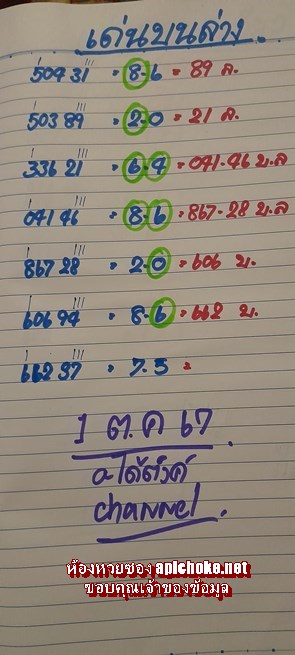 เด่นบนล่าง.
509 31 = 8-6 = 89 ล.
503 89 = 2-0 = 21 ล.
336 21 = 6-9 = 041-46 บ.ล
041 46 = 8-6 = 867-28 บ.ล
867 28 = 2-0 = 606 บ.
606 94 = 8-6 = 662 บ.
662 37 = 7-5 =
1 ต.ค 67.
channel
ห้องหวยซอง apichoke.net
ขอบคุณเจ้าของข้อมูล